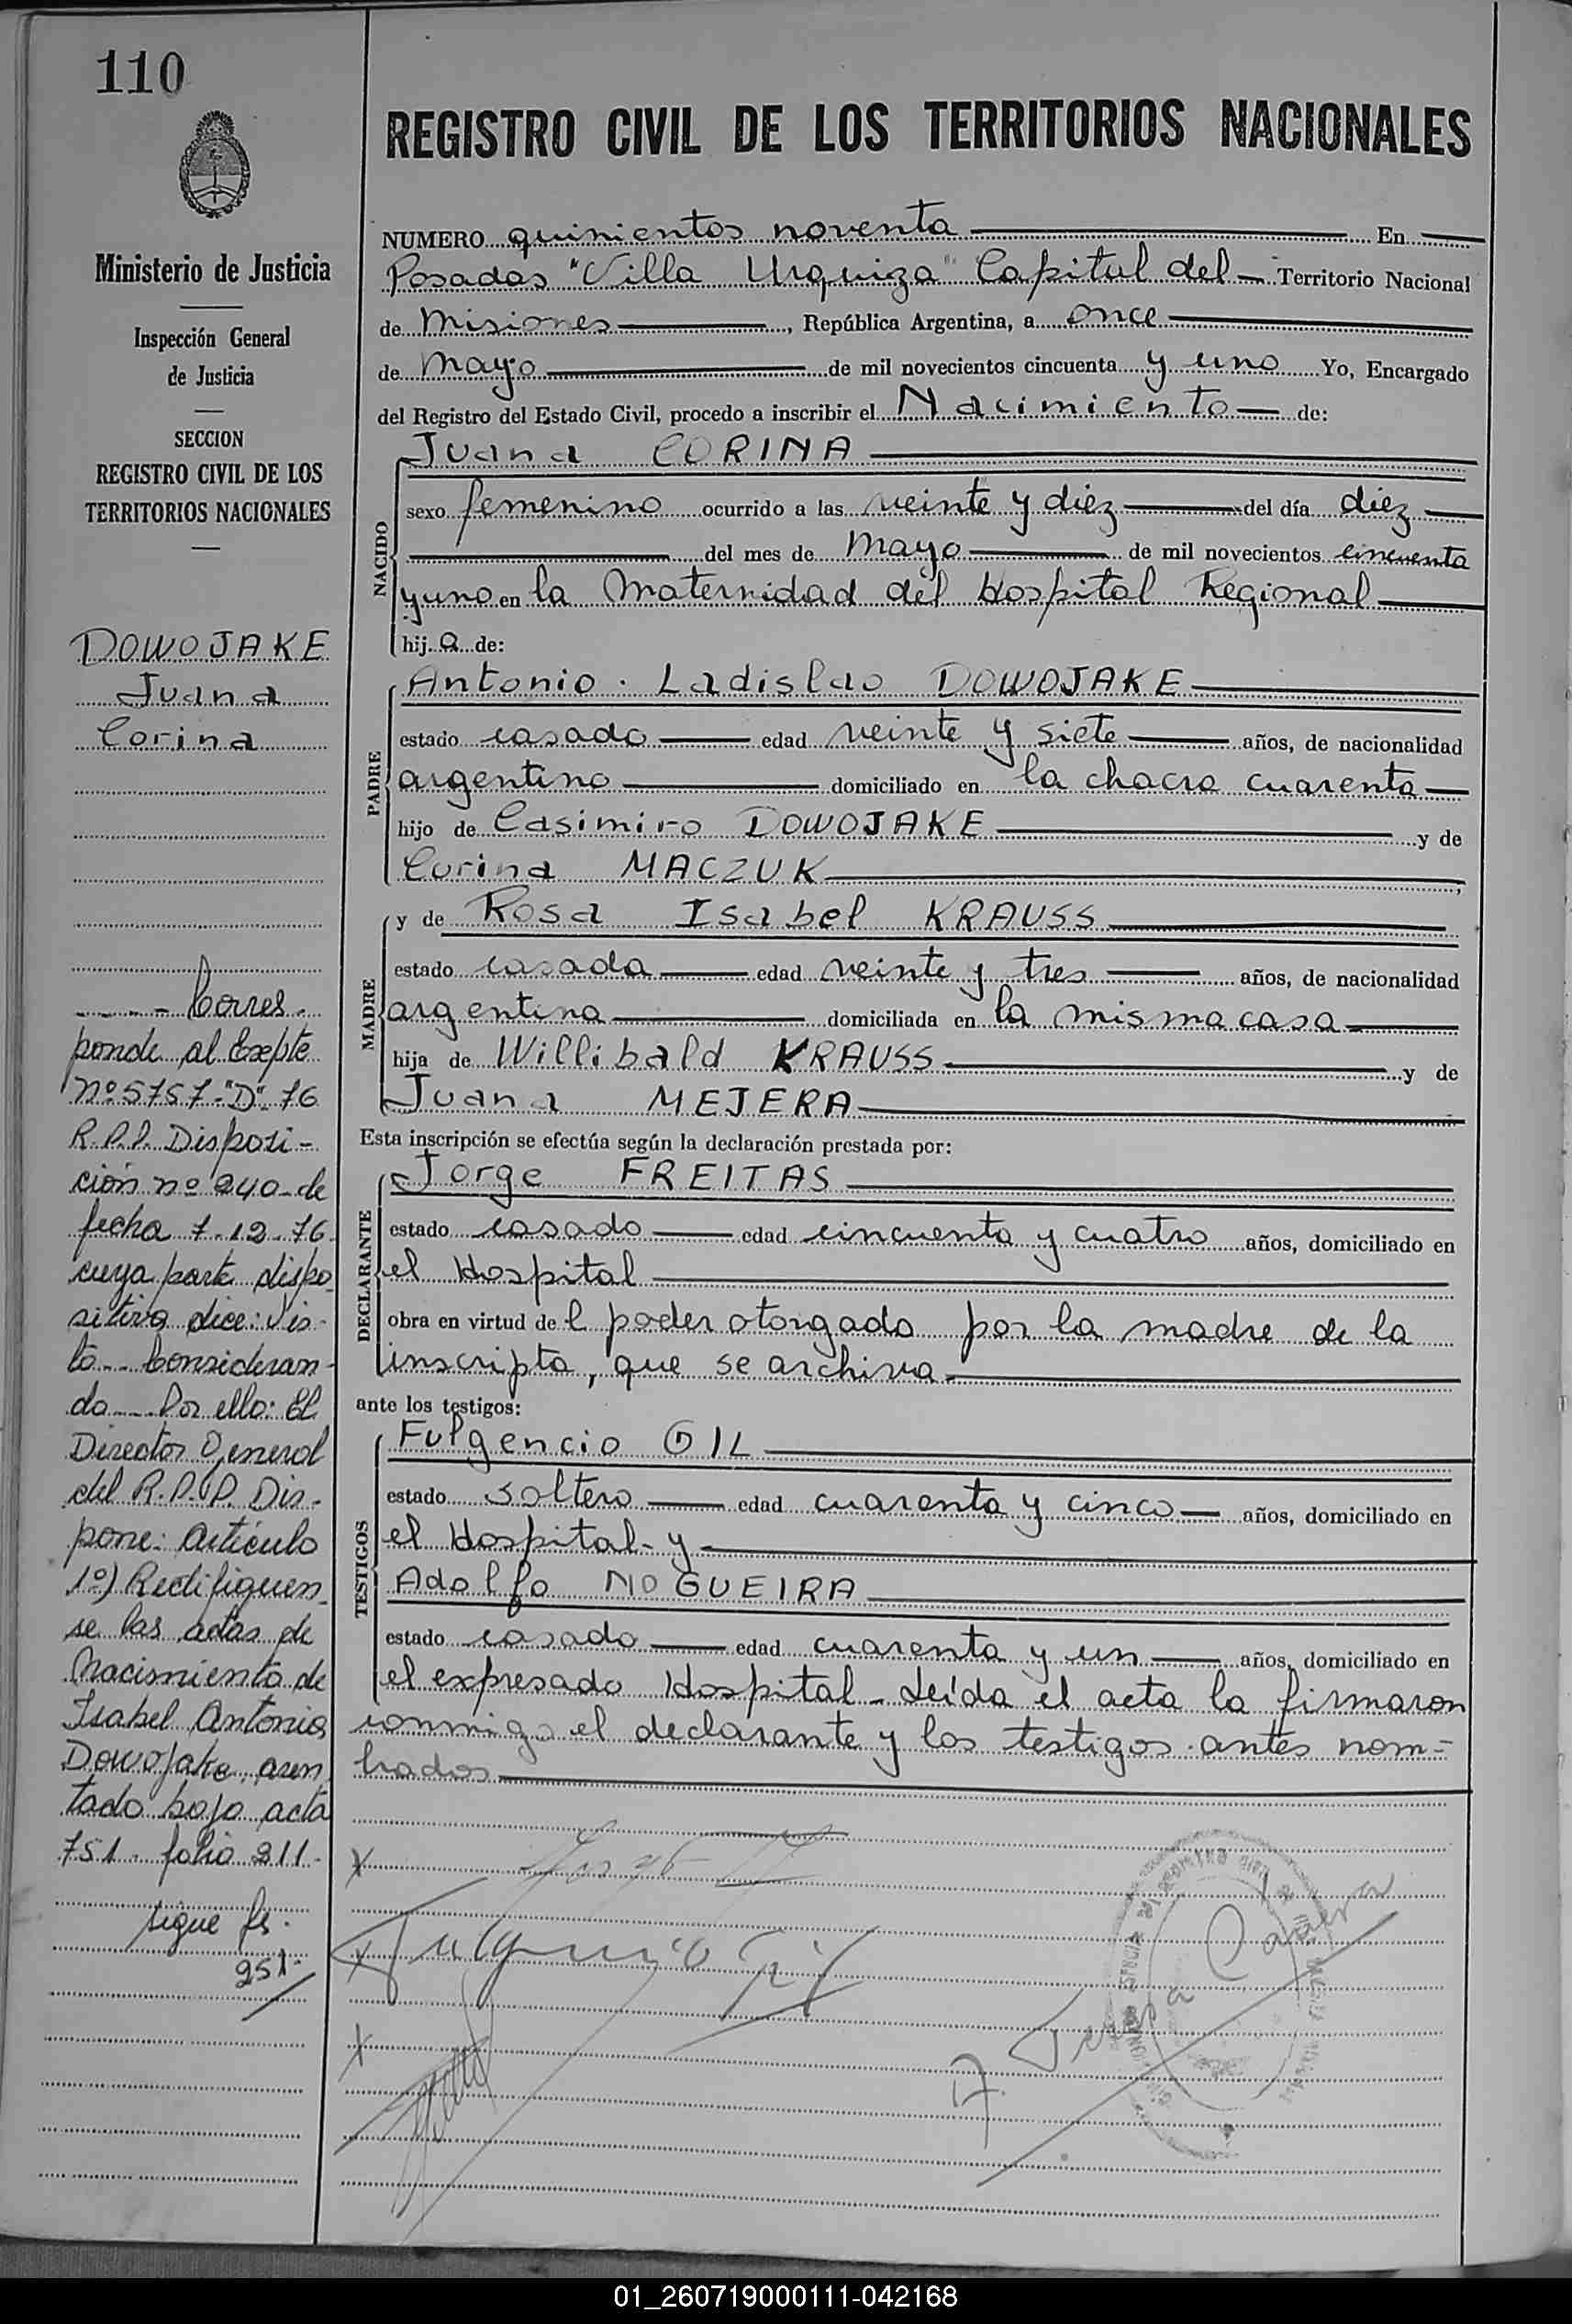 110
Ministerio de Justicia
Inspección General
de Justicia
SECCION
REGISTRO CIVIL DE LOS
TERRITORIOS NACIONALES
DOWOJAKE
Juana
Corina
Corres-
ponde al Expte
nº 5757-"D"-76
R.P.P. Disposi-
ción nº 240 de
fecha 7-12-76
cuya parte dispo-
sitiva dice: Vis-
to-- Consideran-
do--- Por ello: El
Director General
del R.P.P. Dis-
pone: Artículo
1º) Rectifiquen-
se las actas de
Nacimiento de
Isabel Antonia
Dowojake, asen
tado bajo acta
751 - folio 211.
sigue fs.
251-
REGISTRO CIVIL DE LOS TERRITORIOS NACIONALES
NUMERO quinientos noventa En
Posadas "Villa Urquiza" Capital del Territorio Nacional
de Misiones, República Argentina, a once
de Mayo de mil novecientos cincuenta y uno Yo, Encargado
del Registro del Estado Civil, procedo a inscribir el Nacimiento de:
NACIDO
Juana CORINA
sexo femenino ocurrido a las veinte y diez del día diez
del mes de Mayo de mil novecientos cincuenta
y uno en la Maternidad del Hospital Regional
hij a de:
PADRE
Antonio Ladislao DOWOJAKE
estado casado edad veinte y siete años, de nacionalidad
argentino domiciliado en la chacra cuarenta
hijo de Casimiro DOWOJAKE y de
Corina MACZUK
MADRE
y de Rosa Isabel KRAUSS
estado casada edad veinte y tres años, de nacionalidad
argentina domiciliada en la misma casa
hija de Willibald KRAUSS y de
Juana MEJERA
Esta inscripción se efectúa según la declaración prestada por:
DECLARANTE
Jorge FREITAS
estado casado edad cincuenta y cuatro años, domiciliado en
el Hospital
obra en virtud de l poder otorgado por la madre de la
inscripta, que se archiva
ante los testigos:
TESTIGOS
Fulgencio GIL
estado soltero edad cuarenta y cinco años, domiciliado en
el Hospital- y
Adolfo NOGUEIRA
estado casado edad cuarenta y un años, domiciliado en
el expresado Hospital - Leída el acta la firmaron
conmigo el declarante y los testigos antes nom-
brados
Fulgencio Gil
01_260719000111-042168